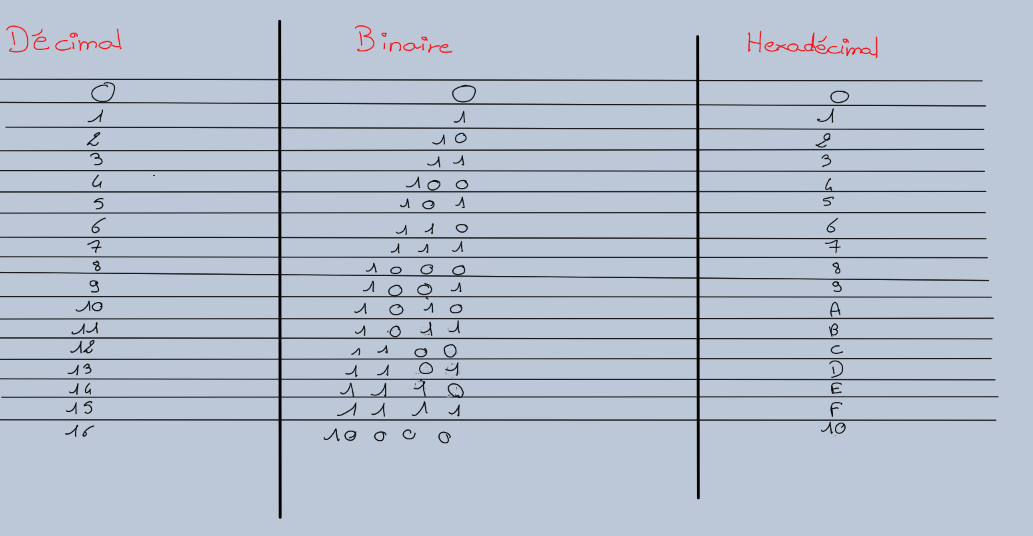 Décimal Binaire Hexadécimal
0 0 0
1 1 1
2 10 2
3 11 3
4 100 4
5 101 5
6 110 6
7 111 7
8 1000 8
9 1001 9
10 1010 A
11 1011 B
12 1100 C
13 1101 D
14 1110 E
15 1111 F
16 10000 10